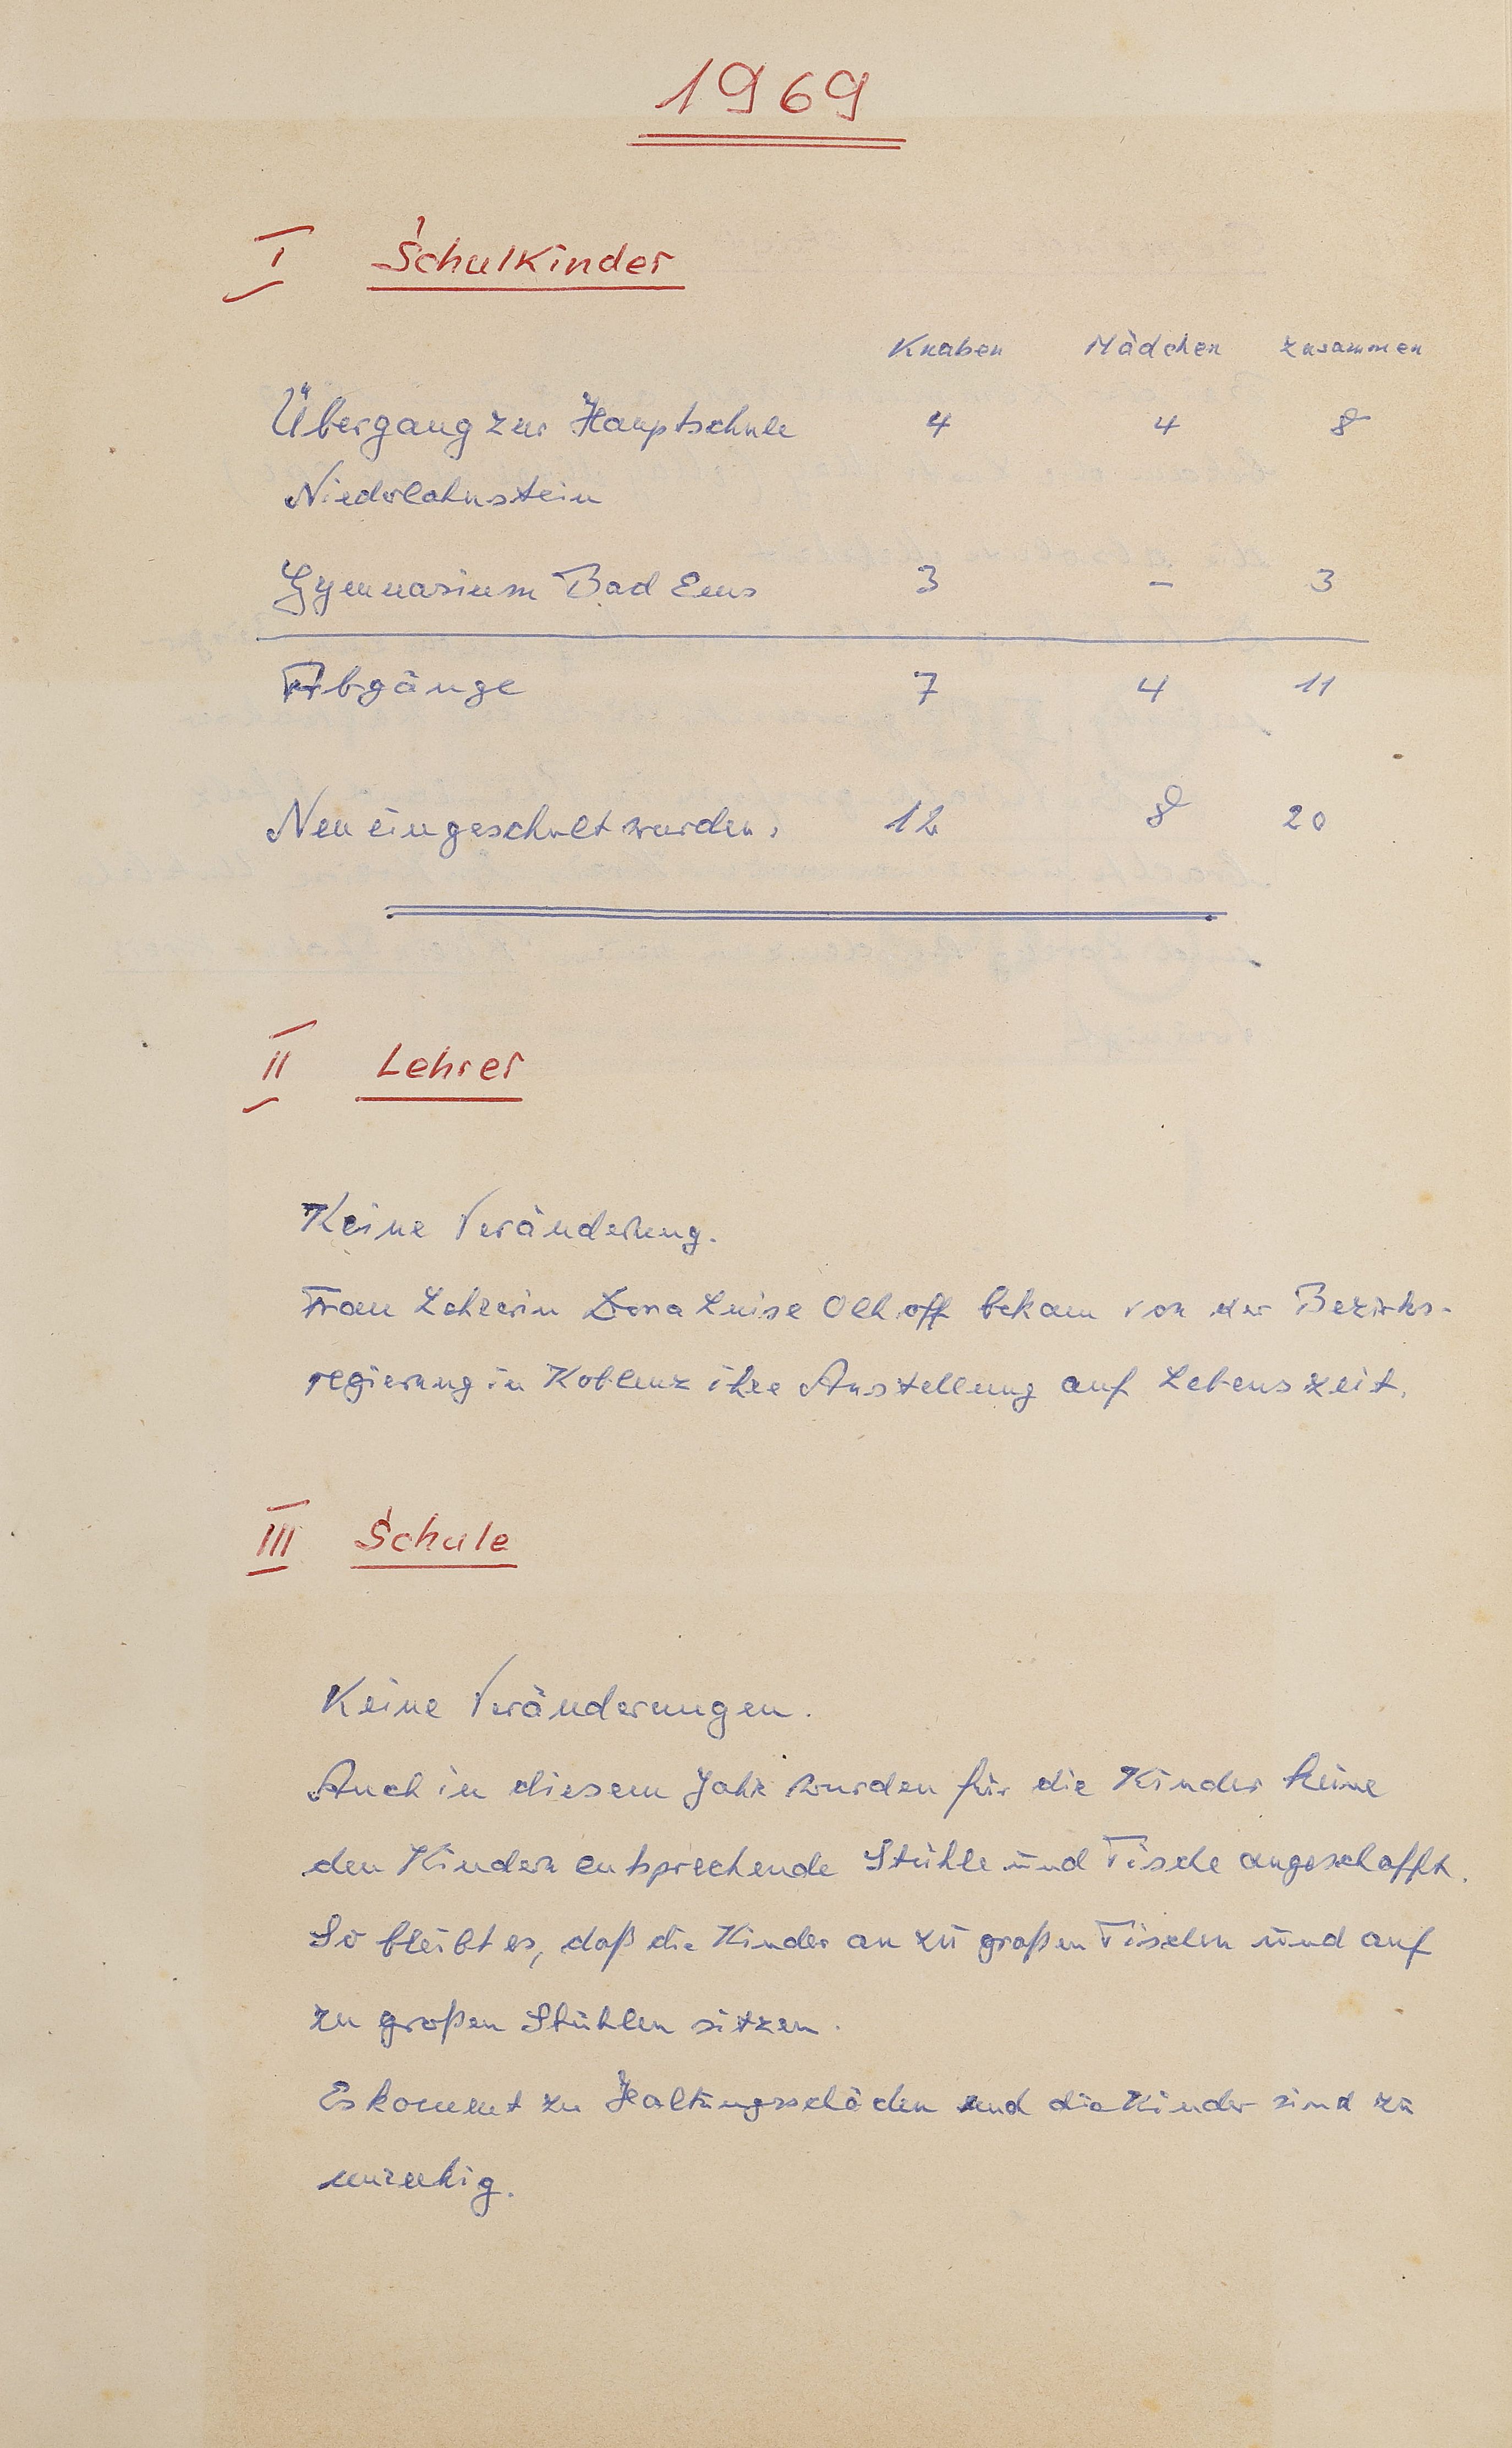 1969
I Schulkinder
Knaben Mädchen zusammen
Übergang zur Hauptschule 4 4 8
Niederlahnstein
Gymnasium Bad Ems 3 – 3
Abgänge 7 4 11
Neu eingeschult wurden: 12 8 20
II Lehrer
Keine Veränderung.
Frau Lehrerin Dora Luise Olhoff bekam von der Bezirks-
regierung in Koblenz ihre Anstellung auf Lebenszeit.
III Schule
Keine Veränderungen.
Auch in diesem Jahr wurden für die Kinder keine
den Kindern entsprechende Stühle und Tische angeschafft.
So bleibt es, daß die Kinder an zu großen Tischen und auf
zu großen Stühlen sitzen.
Es kommt zu Haltungsschäden und die Kinder sind zu
unruhig.